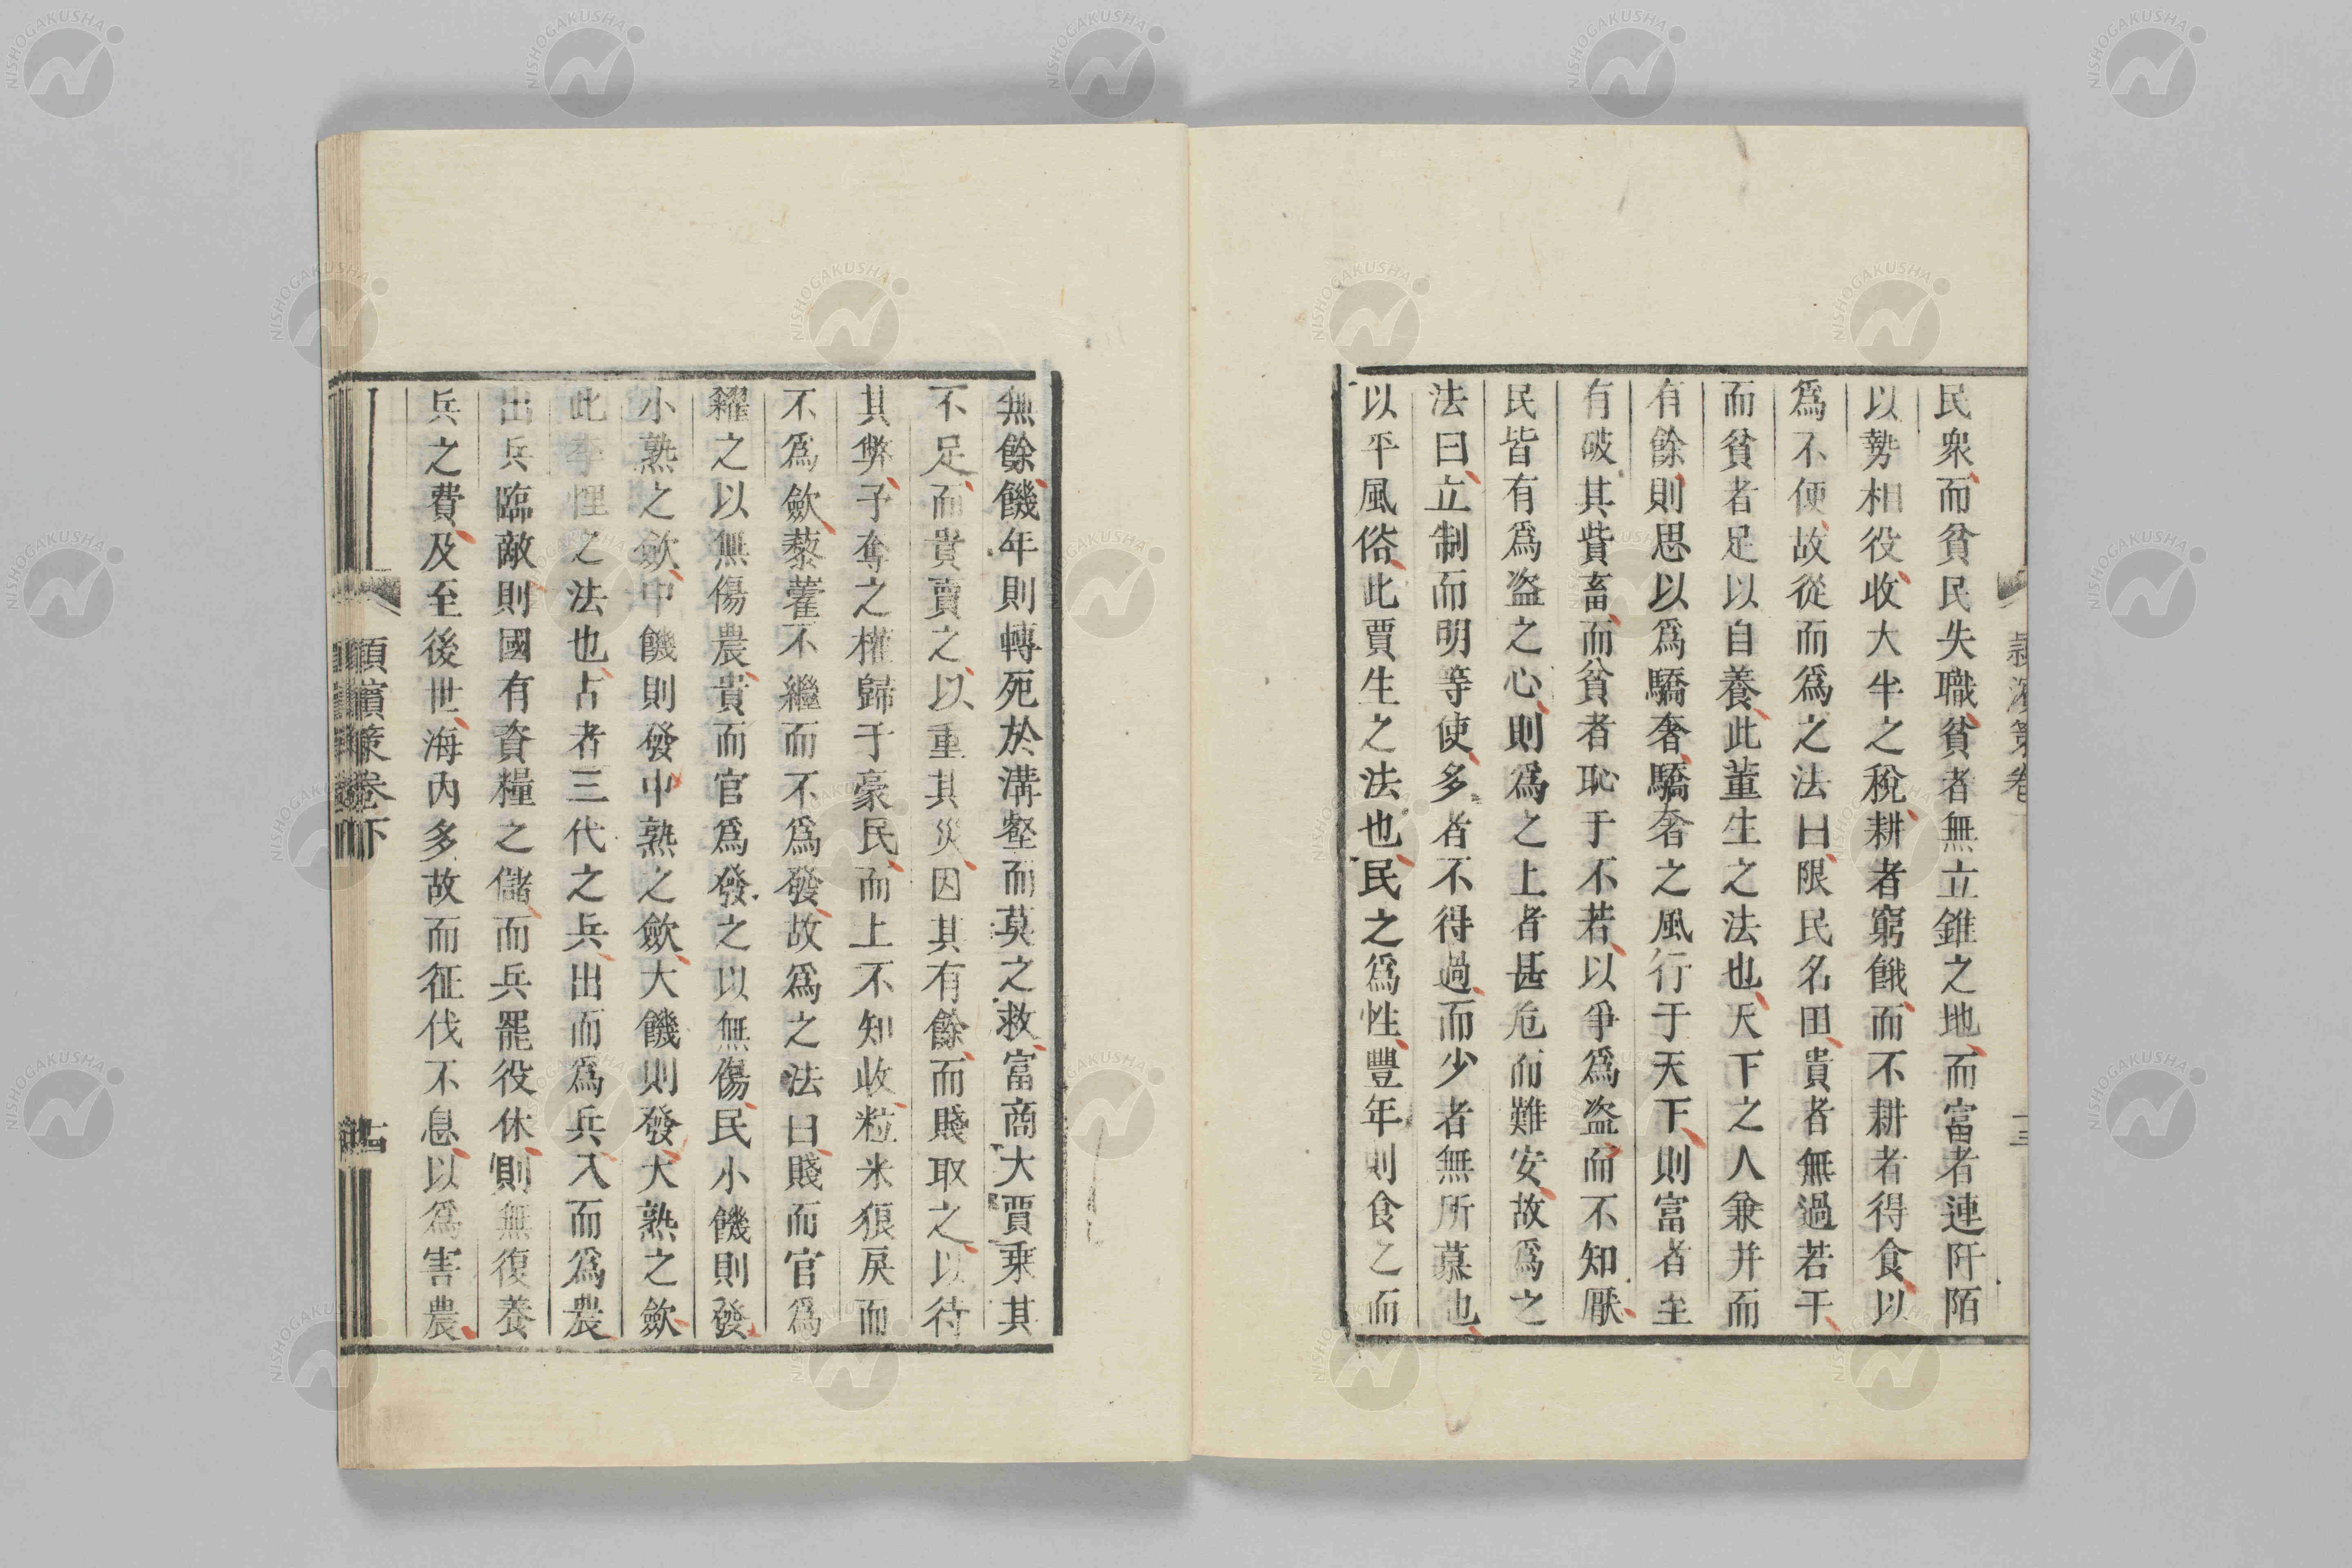 民衆而貧民失職貧者無立錐之地而富者連阡陌
以勢相役收大半之稅耕者窮餓而不耕者得食以
爲不便故從而爲之法曰限民名田貴者無過若干
而貧者足以自養此董生之法也天下之人兼并而
有餘則思以爲驕奢驕奢之風行于天下則富者至
有破其貲畜而貧者恥于不若以爭爲盗而不知厭
民皆有爲盗之心則爲之上者甚危而難安故爲之
法曰立制而明等使多者不得過而少者無所慕也
以平風俗此賈生之法也民之爲性豐年則食之而
無餘饑年則轉死於溝壑而莫之救富商大賈乘其
不足而貴賣之以重其災因其有餘而賤取之以待
其弊予奪之權歸于豪民而上不知收粒米狼戾而
不爲歛藜藿不繼而不爲發故爲之法曰賤而官爲
糴之以無傷農貴而官爲發之以無傷民小饑則發
小熟之歛中饑則發中熟之歛大饑則發大熟之歛
此李悝之法也古者三代之兵出而爲兵入而爲農
出兵臨敵則國有資糧之儲而兵罷役休則無復養
兵之費及至後世海內多故而征伐不息以爲害農
潁濱策卷下
十四
NISHOGAKUSHA